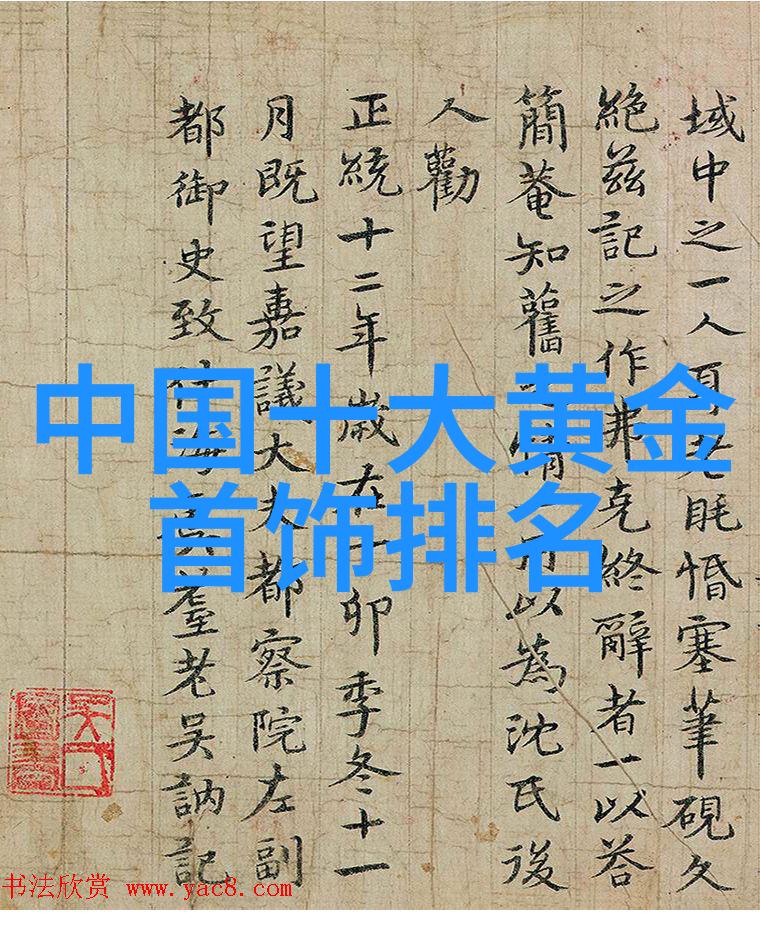 域中之一人耳老眊惛塞筆硯久
絶兹記之作弗克終辭者一以荅
簡菴知舊之情一用以為沈氏後
人勸
正統十二年歲在丁卯季冬十一
月既望嘉議大夫都察院左副
都御史致仕海虞耋老吳訥記
中国十大黄金
首饰排名
书法欣赏 www.yac8.com